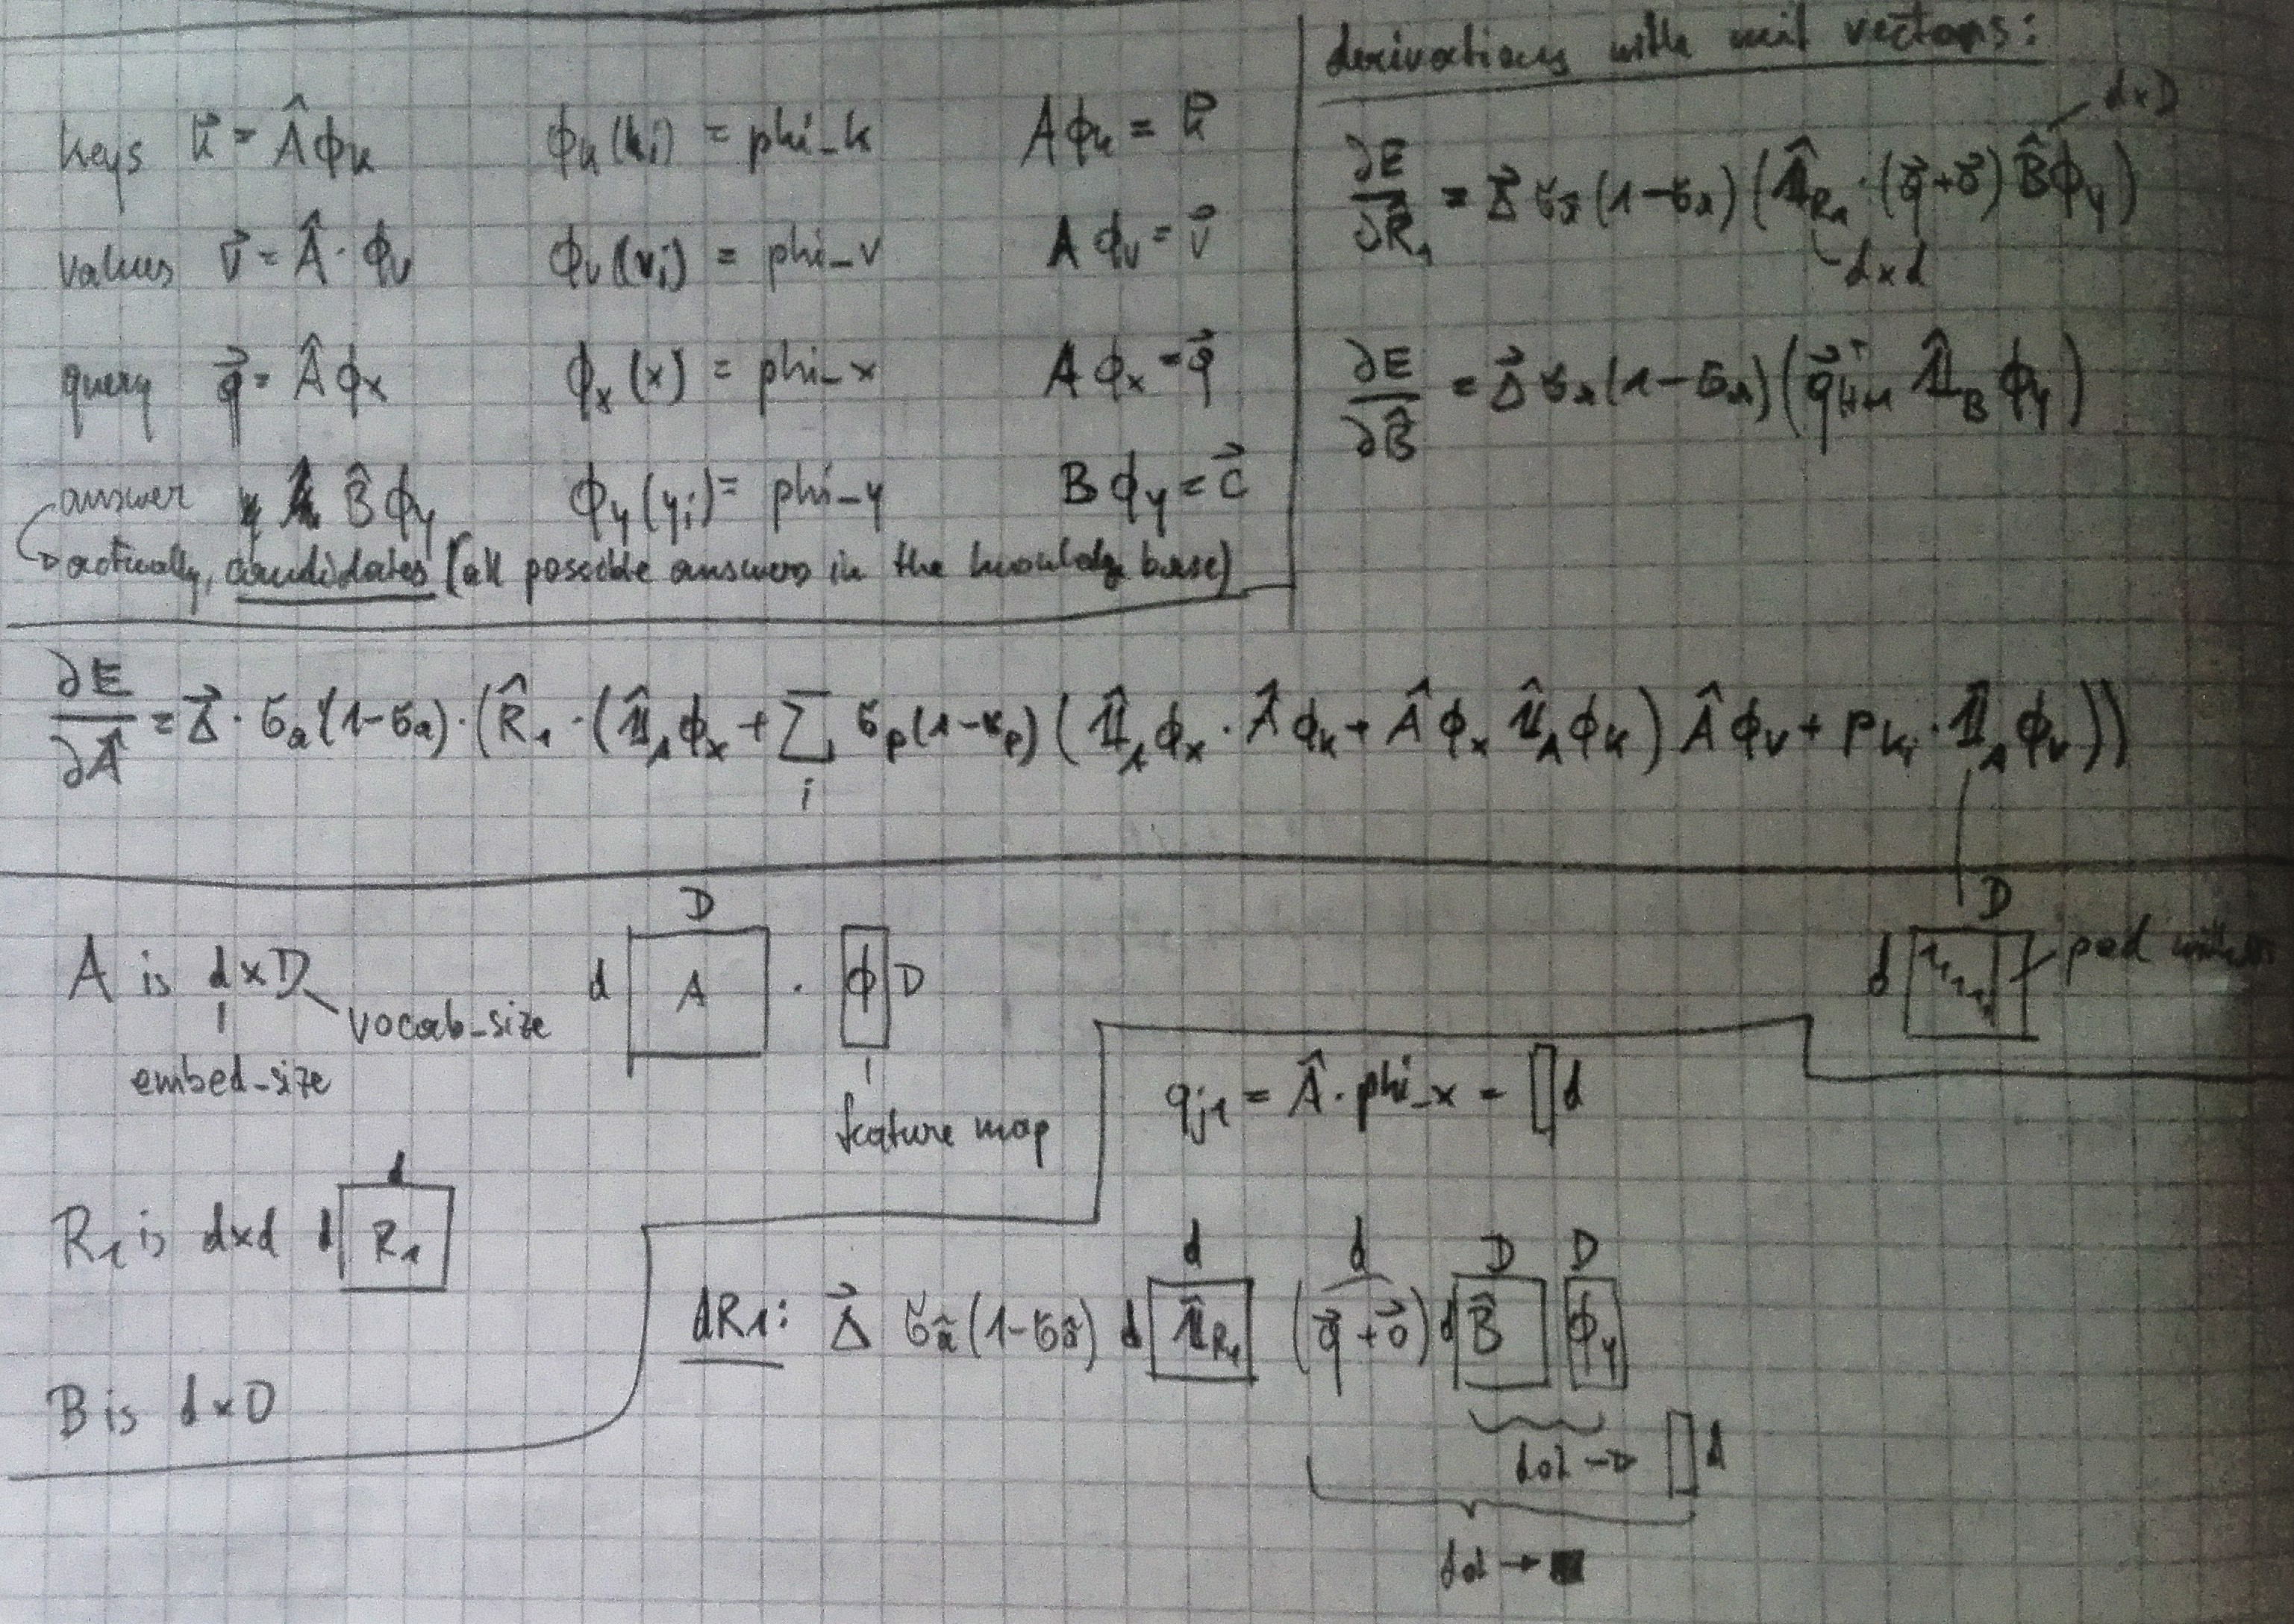 keys k⃗ = Â ϕₖ ϕₖ(kᵢ) = phi_k Aϕₖ = k⃗
values v⃗ = Â · ϕᵥ ϕᵥ(vᵢ) = phi_v Aϕᵥ = v⃗
query q⃗ = Â ϕₓ ϕₓ(x) = phi_x Aϕₓ = q⃗
answer B̂ ϕ_y ϕ_y(yᵢ) = phi_y Bϕ_y = c⃗
actually, candidates (all possible answers in the knowledge base)
derivations with unit vectors:
d×D
∂E/∂R̂₁ = Δ⃗ σₐ(1-σₐ)(𝟙̂_R₁ · (q⃗+o⃗) B̂ϕ_y)
d×d
∂E/∂B̂ = Δ⃗ σₐ(1-σₐ)(q⃗ᵀ_H+1 𝟙̂_B ϕ_y)
∂E/∂Â = Δ⃗ · σₐ(1-σₐ) · (R̂₁ · (𝟙̂_A ϕₓ + Σᵢ σₚ(1-σₚ)(𝟙̂_A ϕₓ · Â ϕₖ + Â ϕₓ 𝟙̂_A ϕₖ) Â ϕᵥ + pₖᵢ · 𝟙̂_A ϕᵥ))
A is d×D
vocab_size
embed_size
D
d A · ϕ D
feature map
D
d 1 1 1 1 pad with
R₁ is d×d
d
d R₁
B is d×D
qⱼ₁ = Â · phi_x = d
d d D D
dR1: Δ⃗ σₐ(1-σₐ) d 𝟙̂_R₁ (q⃗+o⃗) d B̂ ϕ_y
dot → d
dot →